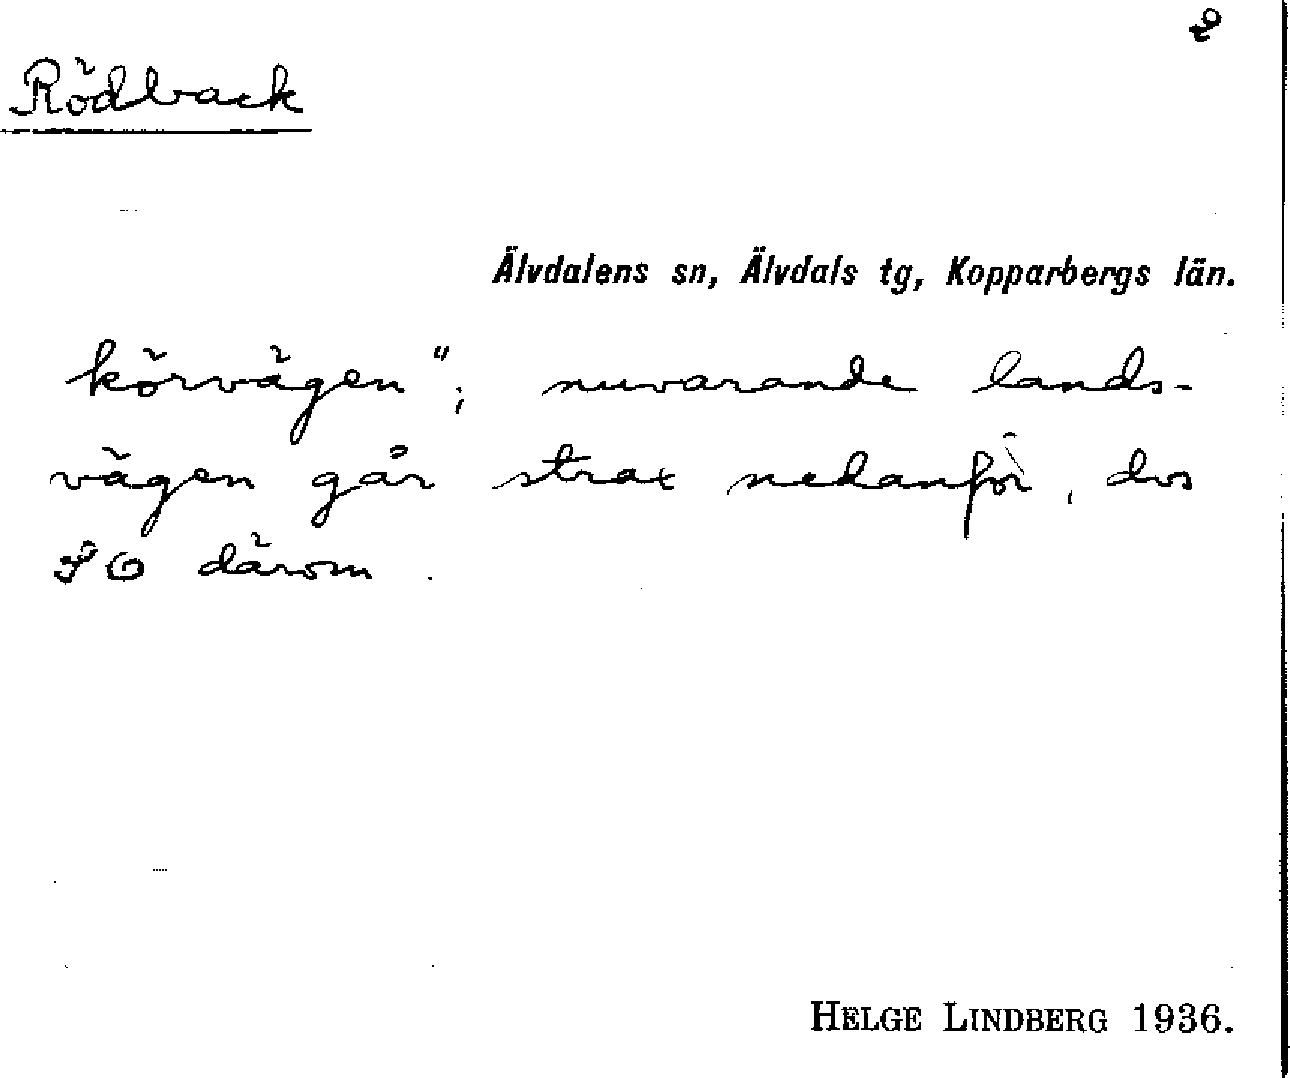 2
Rödback
Älvdalens sn, Älvdals tg, Kopparbergs län.
körvägen"; nuvarande lands-
vägen går strax nedanför, dvs
SO därom.
HELGE LINDBERG 1936.